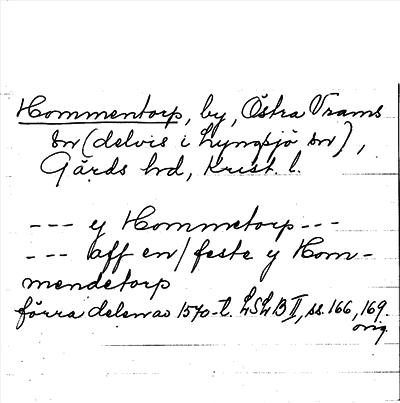 Hommentorp, by, Östra Vrams
sn (delvis i Lyngsjö sn),
Gärds hd, Krist. l.
--- y Hommetorp ---
--- aff en/feste y Hom-
mendetorp
förra delen av 1570-t. LSLB II, ss. 166, 169.
orig.